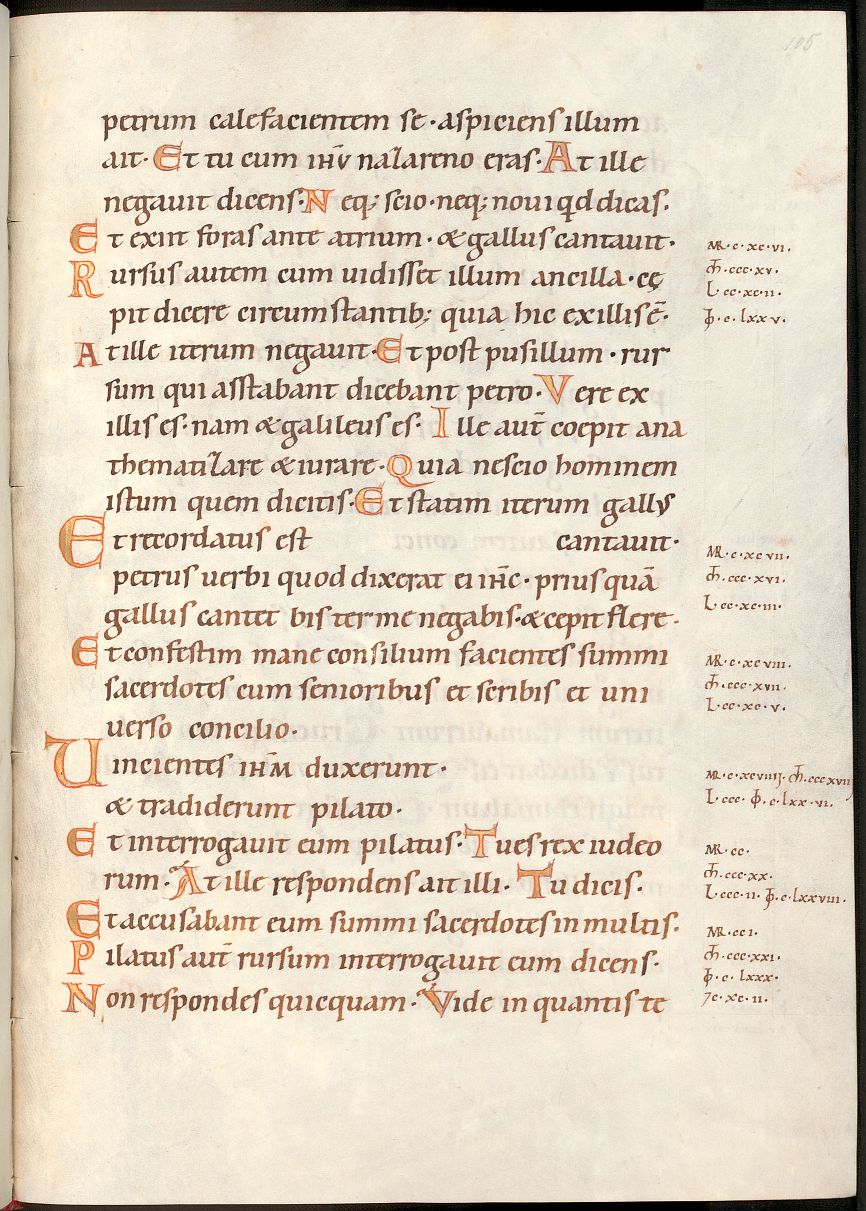 105
petrum calefacientem se · aspiciens illum
ait · Et tu cum ihv̄ nazareno eras · At ille
negauit dicens · Neq; scio · neq; noui qd dicas ·
Et exiit foras ante atrium · & gallus cantauit · MR · c · xc · vi ·
M̄ · ccc · xv ·
L · cc · xc · ii ·
Rursus autem cum uidisset illum ancilla · cę
pit dicere circumstantib; quia hic ex illis ē · ꝉ · c · lxxv ·
At ille iterum negauit · Et post pusillum · rur
sum qui asstabant dicebant petro · Vere ex
illis es · nam & galileus es · Ille aut̄ coepit ana
thematizare & iurare · Quia nescio hominem
istum quem dicitis · Et statim iterum gallus
Et recordatus est cantauit · MR · c · xcvii ·
petrus uerbi quod dixerat ei ihc̄ · prius quā M̄ · ccc · xvi ·
gallus cantet bis ter me negabis · & cepit flere · L · cc · xc · iii ·
Et confestim mane consilium facientes summi MR · c · xcviii ·
sacerdotes cum senioribus et scribis et uni M̄ · ccc · xvii ·
L · cc · xc · v ·
uerso concilio ·
Uincientes ihm̄ duxerunt · MR · c · xcviiii · M̄ · cccxviii
& tradiderunt pilato · L · ccc · ꝉ · c · lxx · vi ·
Et interrogauit eum pilatus · Tu es rex iudeo MR · cc ·
rum · At ille respondens ait illi · Tu dicis · M̄ · ccc · xx ·
L · ccc · ii · ꝉ · c · lxxviii ·
Et accusabant eum summi sacerdotes in multis · MR · cc i ·
Pilatus aut̄ rursum interrogauit eum dicens · M̄ · ccc · xxi ·
ꝉ · c · lxxx ·
Non respondes quicquam · Vide in quantis te